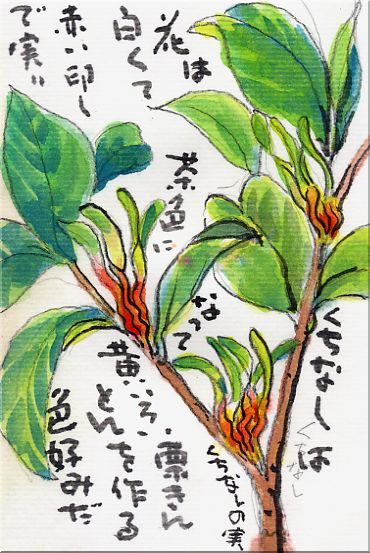 くちなしは
くちなし
花は
白くて
赤い印し
で実ハ
茶色に
なって
黄いろい栗きん
とんを作る
色好みだ
くちなしの実